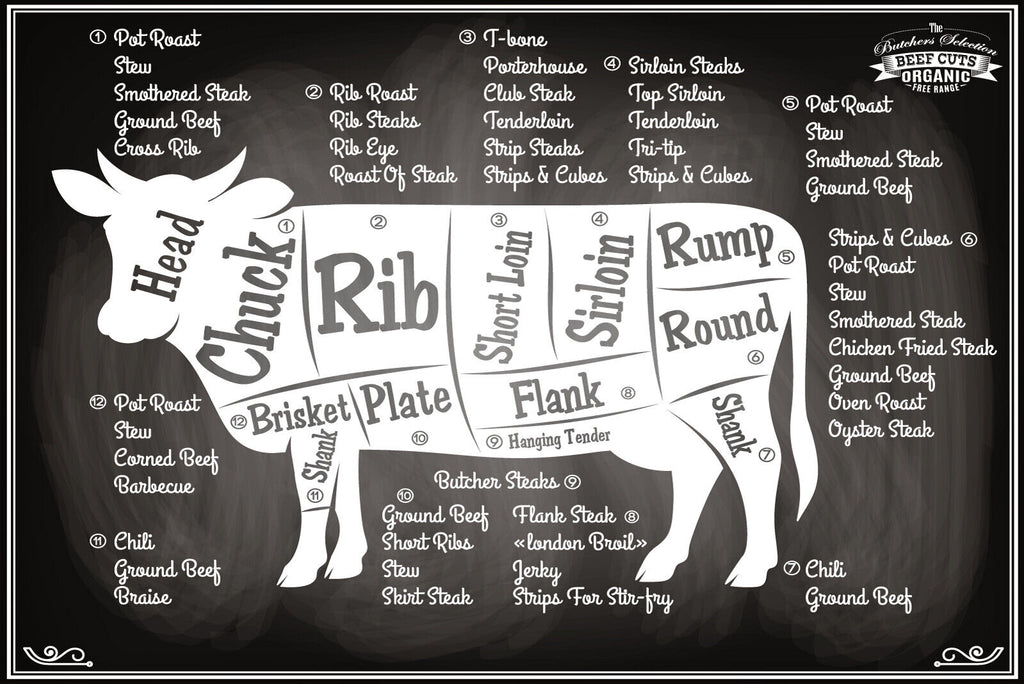 The
Butchers Selection
BEEF CUTS
ORGANIC
FREE RANGE
① Pot Roast
Stew
Smothered Steak
Ground Beef
Cross Rib
② Rib Roast
Rib Steaks
Rib Eye
Roast Of Steak
③ T-bone
Porterhouse
Club Steak
Tenderloin
Strip Steaks
Strips & Cubes
④ Sirloin Steaks
Top Sirloin
Tenderloin
Tri-tip
Strips & Cubes
⑤ Pot Roast
Stew
Smothered Steak
Ground Beef
Strips & Cubes ⑥
Pot Roast
Stew
Smothered Steak
Chicken Fried Steak
Ground Beef
Oven Roast
Oyster Steak
Head
Chuck ①
② Rib
③ Short Loin
④ Sirloin
Rump ⑤
Round ⑥
⑫ Brisket
Plate ⑩
Flank ⑧
⑨ Hanging Tender
Shank ⑪
Shank ⑦
⑫ Pot Roast
Stew
Corned Beef
Barbecue
⑪ Chili
Ground Beef
Braise
Butcher Steaks ⑨
⑩
Ground Beef
Short Ribs
Stew
Skirt Steak
Flank Steak ⑧
«london Broil»
Jerky
Strips For Stir-fry
⑦ Chili
Ground Beef